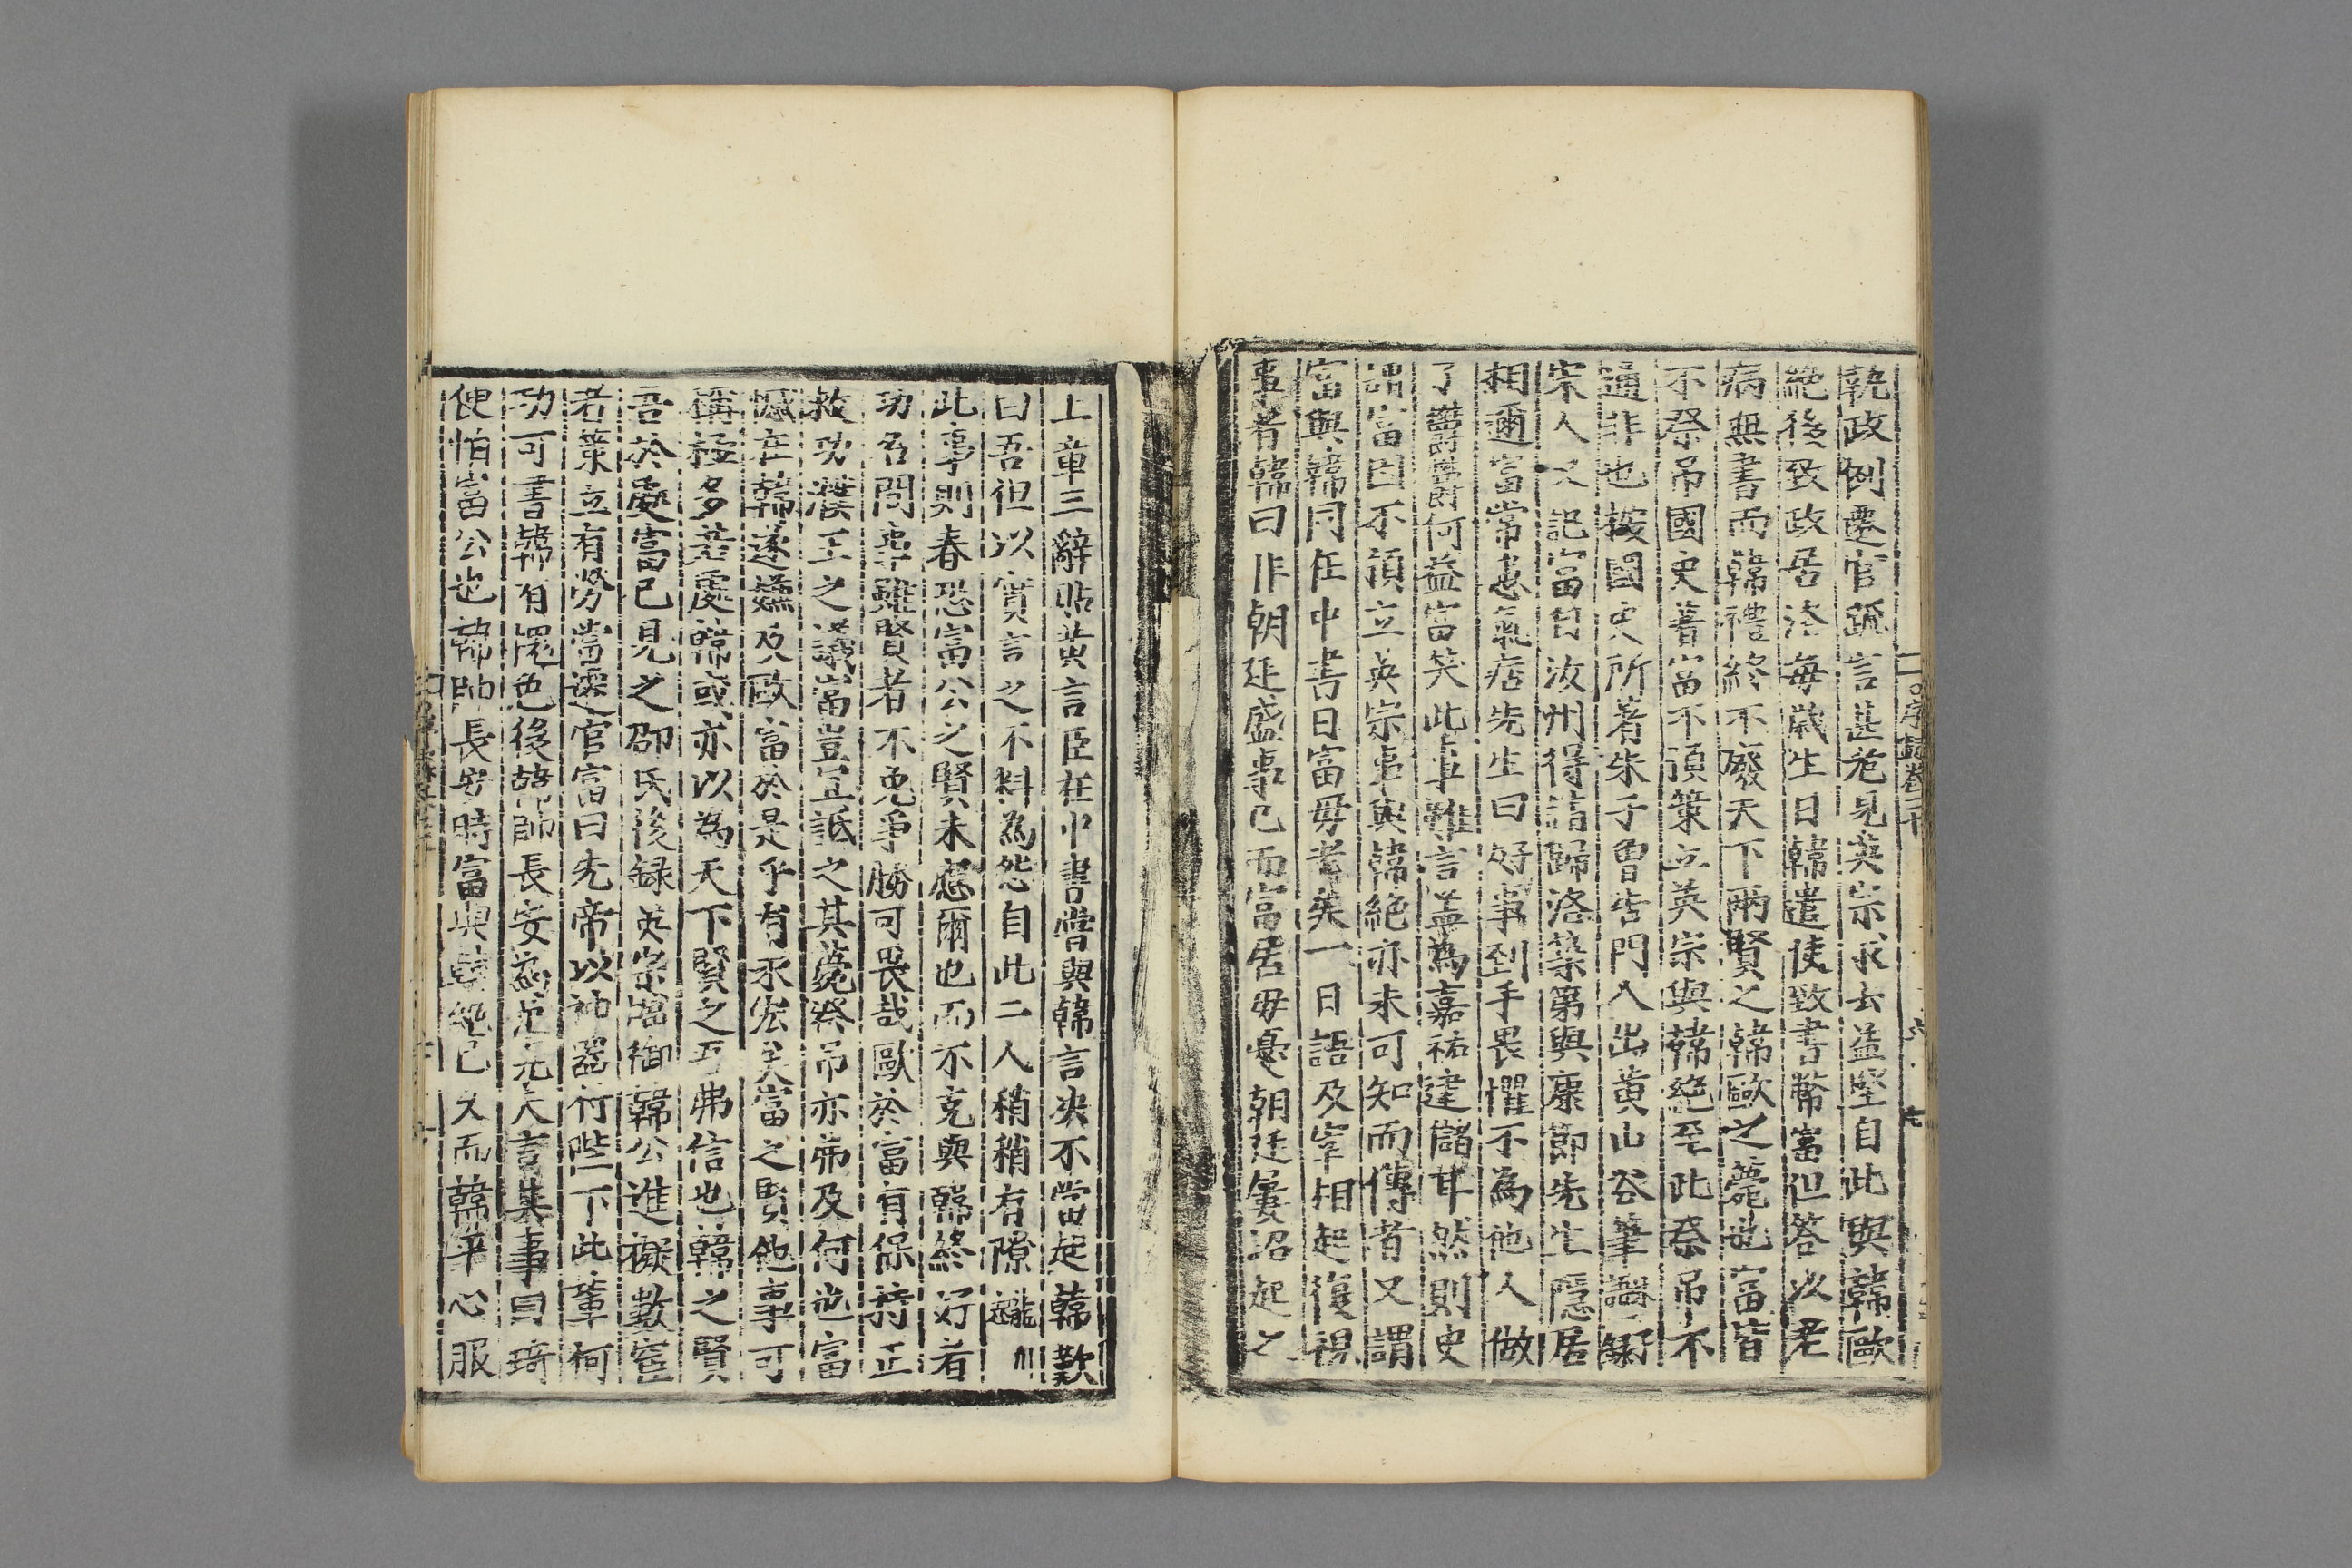 執政例遷官疏言甚危見英宗求去益堅自此與韓歐
絶後致政居洛每歲生日韓遣使致書幣富但答以老
病無書而韓禮終不廢天下兩賢之韓歐之薨也富皆
不祭吊國史著富不預策立英宗與韓絶至此祭吊不
通非也按國史所著朱子曾
門人出黃山谷筆
宋人又記富自汝州得請歸洛築第與康節先生隱居
相邇富常患氣痞先生曰好事到手畏懼不為他人做
了鬱鬱何益富笑此事難言蓋為嘉祐建儲耳然則史
謂富因不預立英宗事與韓絶亦未可知而傳者又謂
富與韓同在中書日富母老矣一日語及宰相起復視
事者韓曰非朝廷盛事已而富居母憂朝廷屢詔起之
上章三辭貼黃言臣在中書嘗與韓言決不當起韓歎
曰吾但以實言之不料為怨自此二人稍稍有隙龍川
此事則春恐富公之賢未應爾也而不克與韓終好者
功名間事雖賢者不免爭勝可畏哉歐於富有保持正
救功濮王之議富豈宜詆之其薨祭吊亦弗及何也富
憾在韓遂嫌及歐富於是乎有不宏矣富之賢他事可
稱極多若處韓或亦以為天下賢之乎弗信也韓之賢
吾於處富已見之邵氏後録英宗臨御韓公進擬數宦
者策立有勞當遷官富曰先帝以神器付陛下此輩何
功可書韓有愧色後韓帥長安為范元夫言其事曰琦
便怕富公也韓帥長安時富與韓絶已久而韓平心服